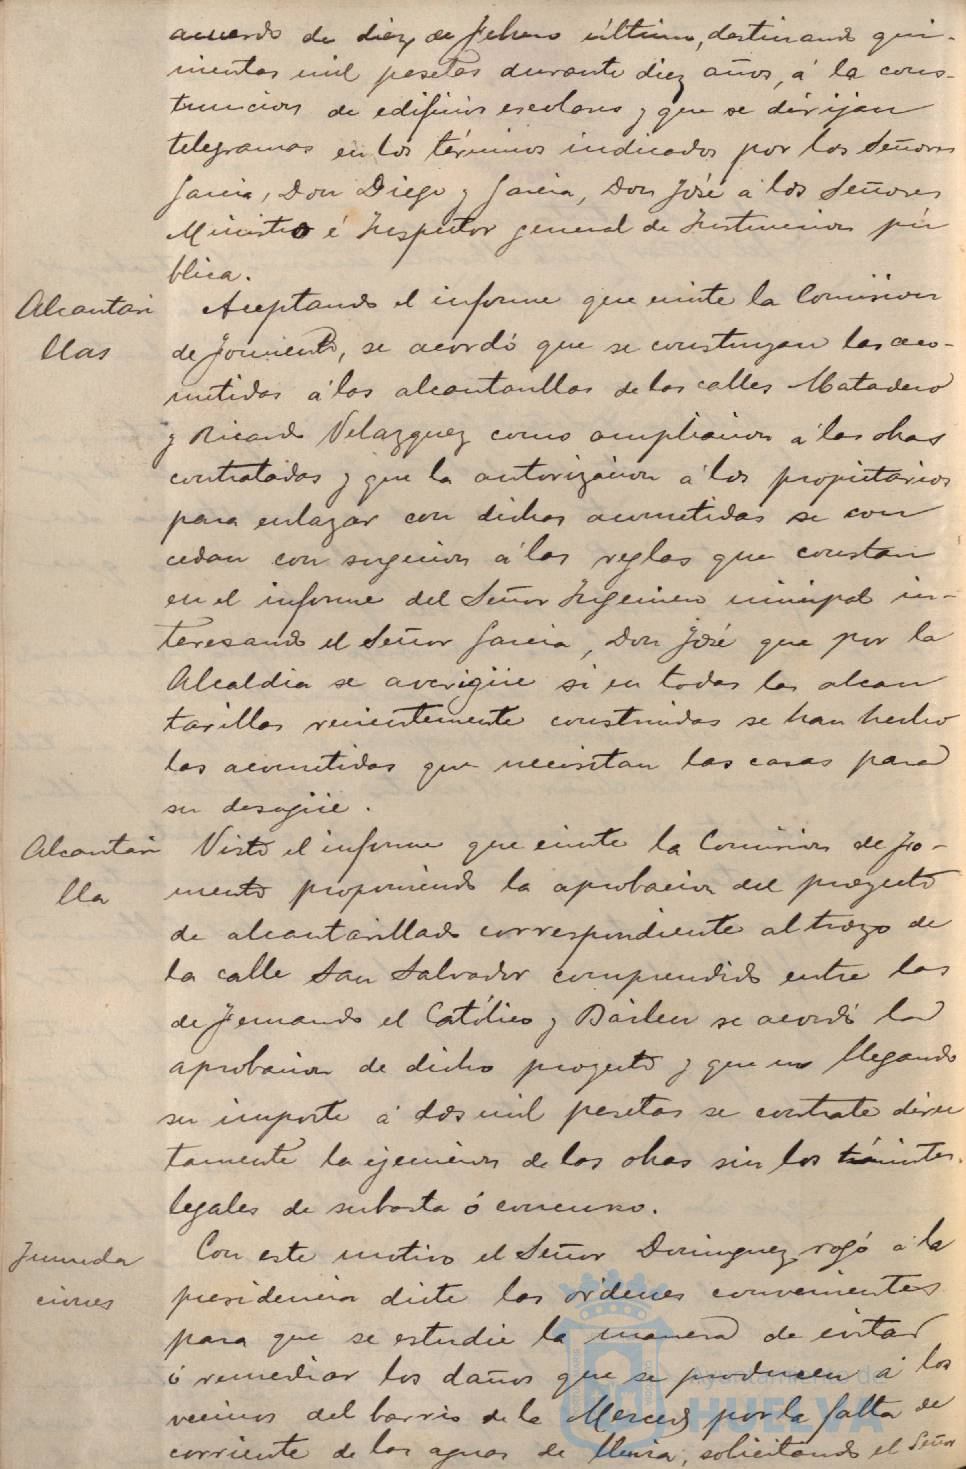 acuerdo de diez de Febrero último, destinando qui-
nientas mil pesetas durante diez años, á la cons-
truccion de edificios escolares y que se dirijan
telegramas en los términos indicados por los Señores
Garcia, Don Diego y Garcia, Don José á los Señores
Ministro é Inspector general de Instruccion pú
blica.
Alcantari
llas
Aceptando el informe que emite la Comision
de Fomento, se acordó que se construyan las aco-
metidas á las alcantarillas de las calles Matadero
y Ricardo Velazquez como ampliacion á las obras
contratadas y que la autorizacion á los propietarios
para enlazar con dichas acometidas se con
cedan con sugecion á las reglas que constan
en el informe del Señor Ingeniero municipal in-
teresando el Señor Garcia, Don José que por la
Alcaldia se averigüe si en todas las alcan
tarillas recientemente construidas se han hecho
las acometidas que necesitan las casas para
su desagüe.
Alcantari
lla
Visto el informe que emite la Comision de Fo-
mento proponiendo la aprobacion del proyecto
de alcantarillado correspondiente al trozo de
la calle San Salvador comprendido entre las
de Fernando el Católico y Bailen se acordó la
aprobacion de dicho proyecto y que no llegando
su importe á dos mil pesetas se contrate direc
tamente la ejecucion de las obras sin los trámites
legales de subasta ó concurso.
Inunda
ciones
Con este motivo el Señor Dominguez rogó á la
presidencia dicte las ordenes convenientes
para que se estudie la manera de evitar
ó remediar los daños que se producen á los
vecinos del barrio de la Merced por la falta de
corriente de las aguas de lluvia, solicitando el Señor
Ayuntamiento de
HUELVA